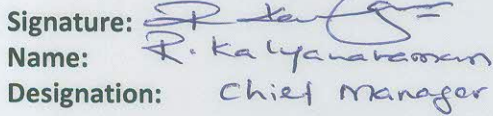 Signature:
Name: R. Kalyanaraman
Designation: Chief Manager